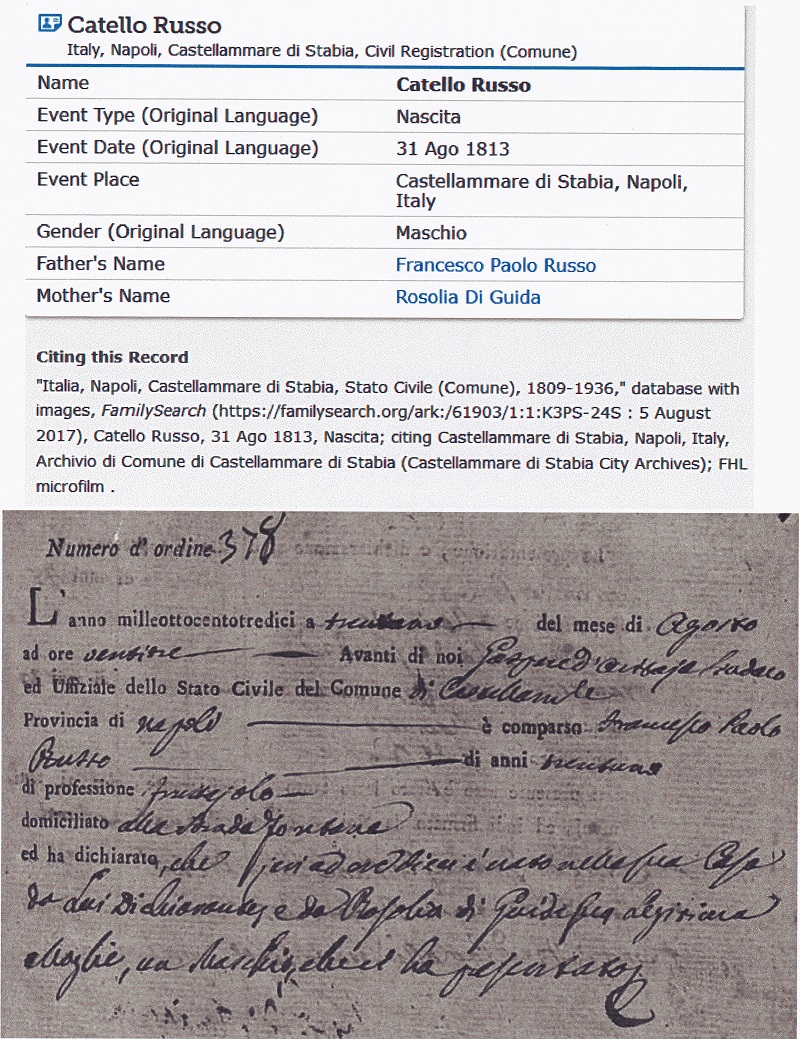 Catello Russo
Italy, Napoli, Castellammare di Stabia, Civil Registration (Comune)
Name Catello Russo
Event Type (Original Language) Nascita
Event Date (Original Language) 31 Ago 1813
Event Place Castellammare di Stabia, Napoli,
Italy
Gender (Original Language) Maschio
Father's Name Francesco Paolo Russo
Mother's Name Rosolia Di Guida
Citing this Record
"Italia, Napoli, Castellammare di Stabia, Stato Civile (Comune), 1809-1936," database with
images, FamilySearch (https://familysearch.org/ark:/61903/1:1:K3PS-24S : 5 August
2017), Catello Russo, 31 Ago 1813, Nascita; citing Castellammare di Stabia, Napoli, Italy,
Archivio di Comune di Castellammare di Stabia (Castellammare di Stabia City Archives); FHL
microfilm .
Numero d'ordine 378
L'anno milleottocentotredici a trentuno del mese di Agosto
ad ore Avanti di noi Sindaco
ed Uffiziale dello Stato Civile del Comune di
Provincia di napoli è comparso Francesco Paolo
Russo di anni trentuno
di professione
domiciliato alla strada fontana
ed ha dichiarato, che jeri ad ore dieci è nato nella sua Casa
da lui Dichiarante, e da Rosolia di Guida sua legitima
Moglie, un Maschio, che ci ha presentato,